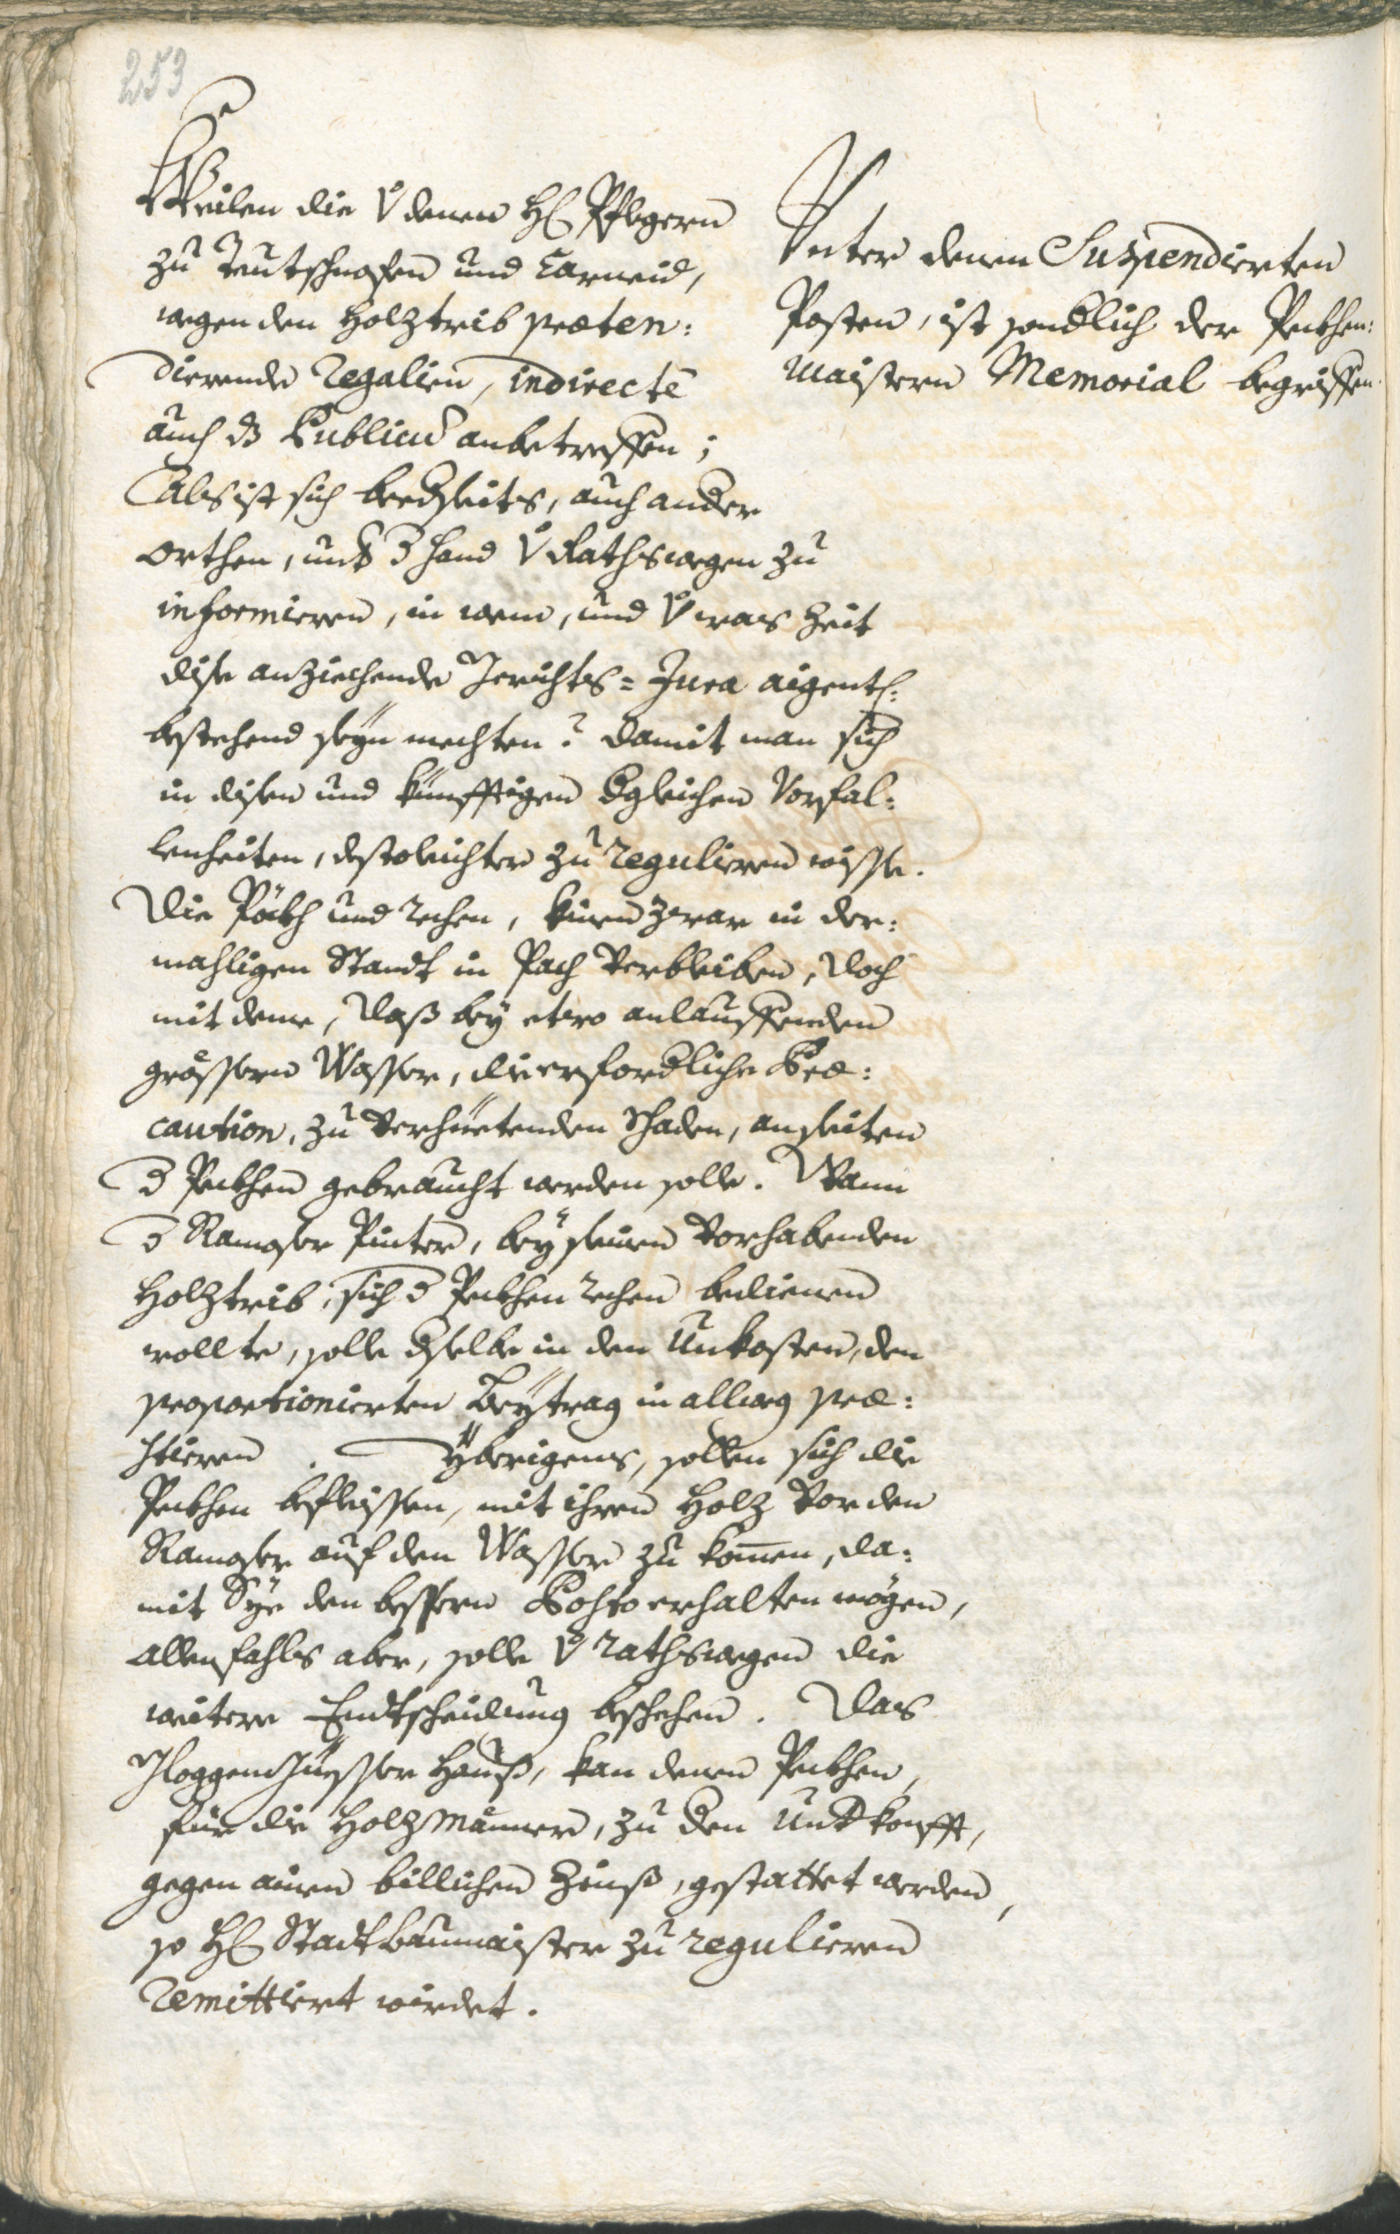 253
Weilen die v denen H Pflegern
zu Teutschnofen und Carneid,
wegen den Holztrib præten:
dierende Regalien, indirecté
auch dz Publicũ anbetreffen;
Als ist sich beedseits, auch ander
orthen, und d Hand v Raths wegen zu
informieren, in weme, und v was Zeit
dise anziechende Gerichts=Jura aigentl:
bestehend seyn mechten? damit man sich
in disen und künfftigen dgleichen Vorfal:
lenheiten, desto leichter zu regulieren wisse.
Die Pökh und rechen, kinen zwar in der:
mahligen Standt in Pach verbleiben, doch
mit deme, daß bey etwo anlauffenden
grössern Wasser, die erforderliche Præ:
caution, zu verhüetenden Schaden, an seiten
d Pekhen gebraucht werden solle. Wann
d Ramoser Pinter, bey seinen vorhabenden
Holztrib, sich d Pekhen rechen bedienen
wollte, solle dselbe in den Unkosten, den
proportionierten Beytrag in allweg præ:
stieren. Yberigens, sollen sich die
Pekhen befleissen, mit ihren Holz vor den
Ramoser auf den Wasser zu komen, da:
mit Sye den bessern Posto erhalten mögen,
allenfahls aber, solle v raths wegen die
weitere Endtscheidung beschehen. Das
Hauß, kan denen Pekhen,
für die Holzmänner, zu den Undkonfft,
gegen ainen billichen Zinß, gestattet werden,
so H Stadtbaumaister zu regulieren
remittiert wirdet.
Unter denen Suspendierten
Posten, ist sondlich der Pekhen:
maistern Memorial begriffen.